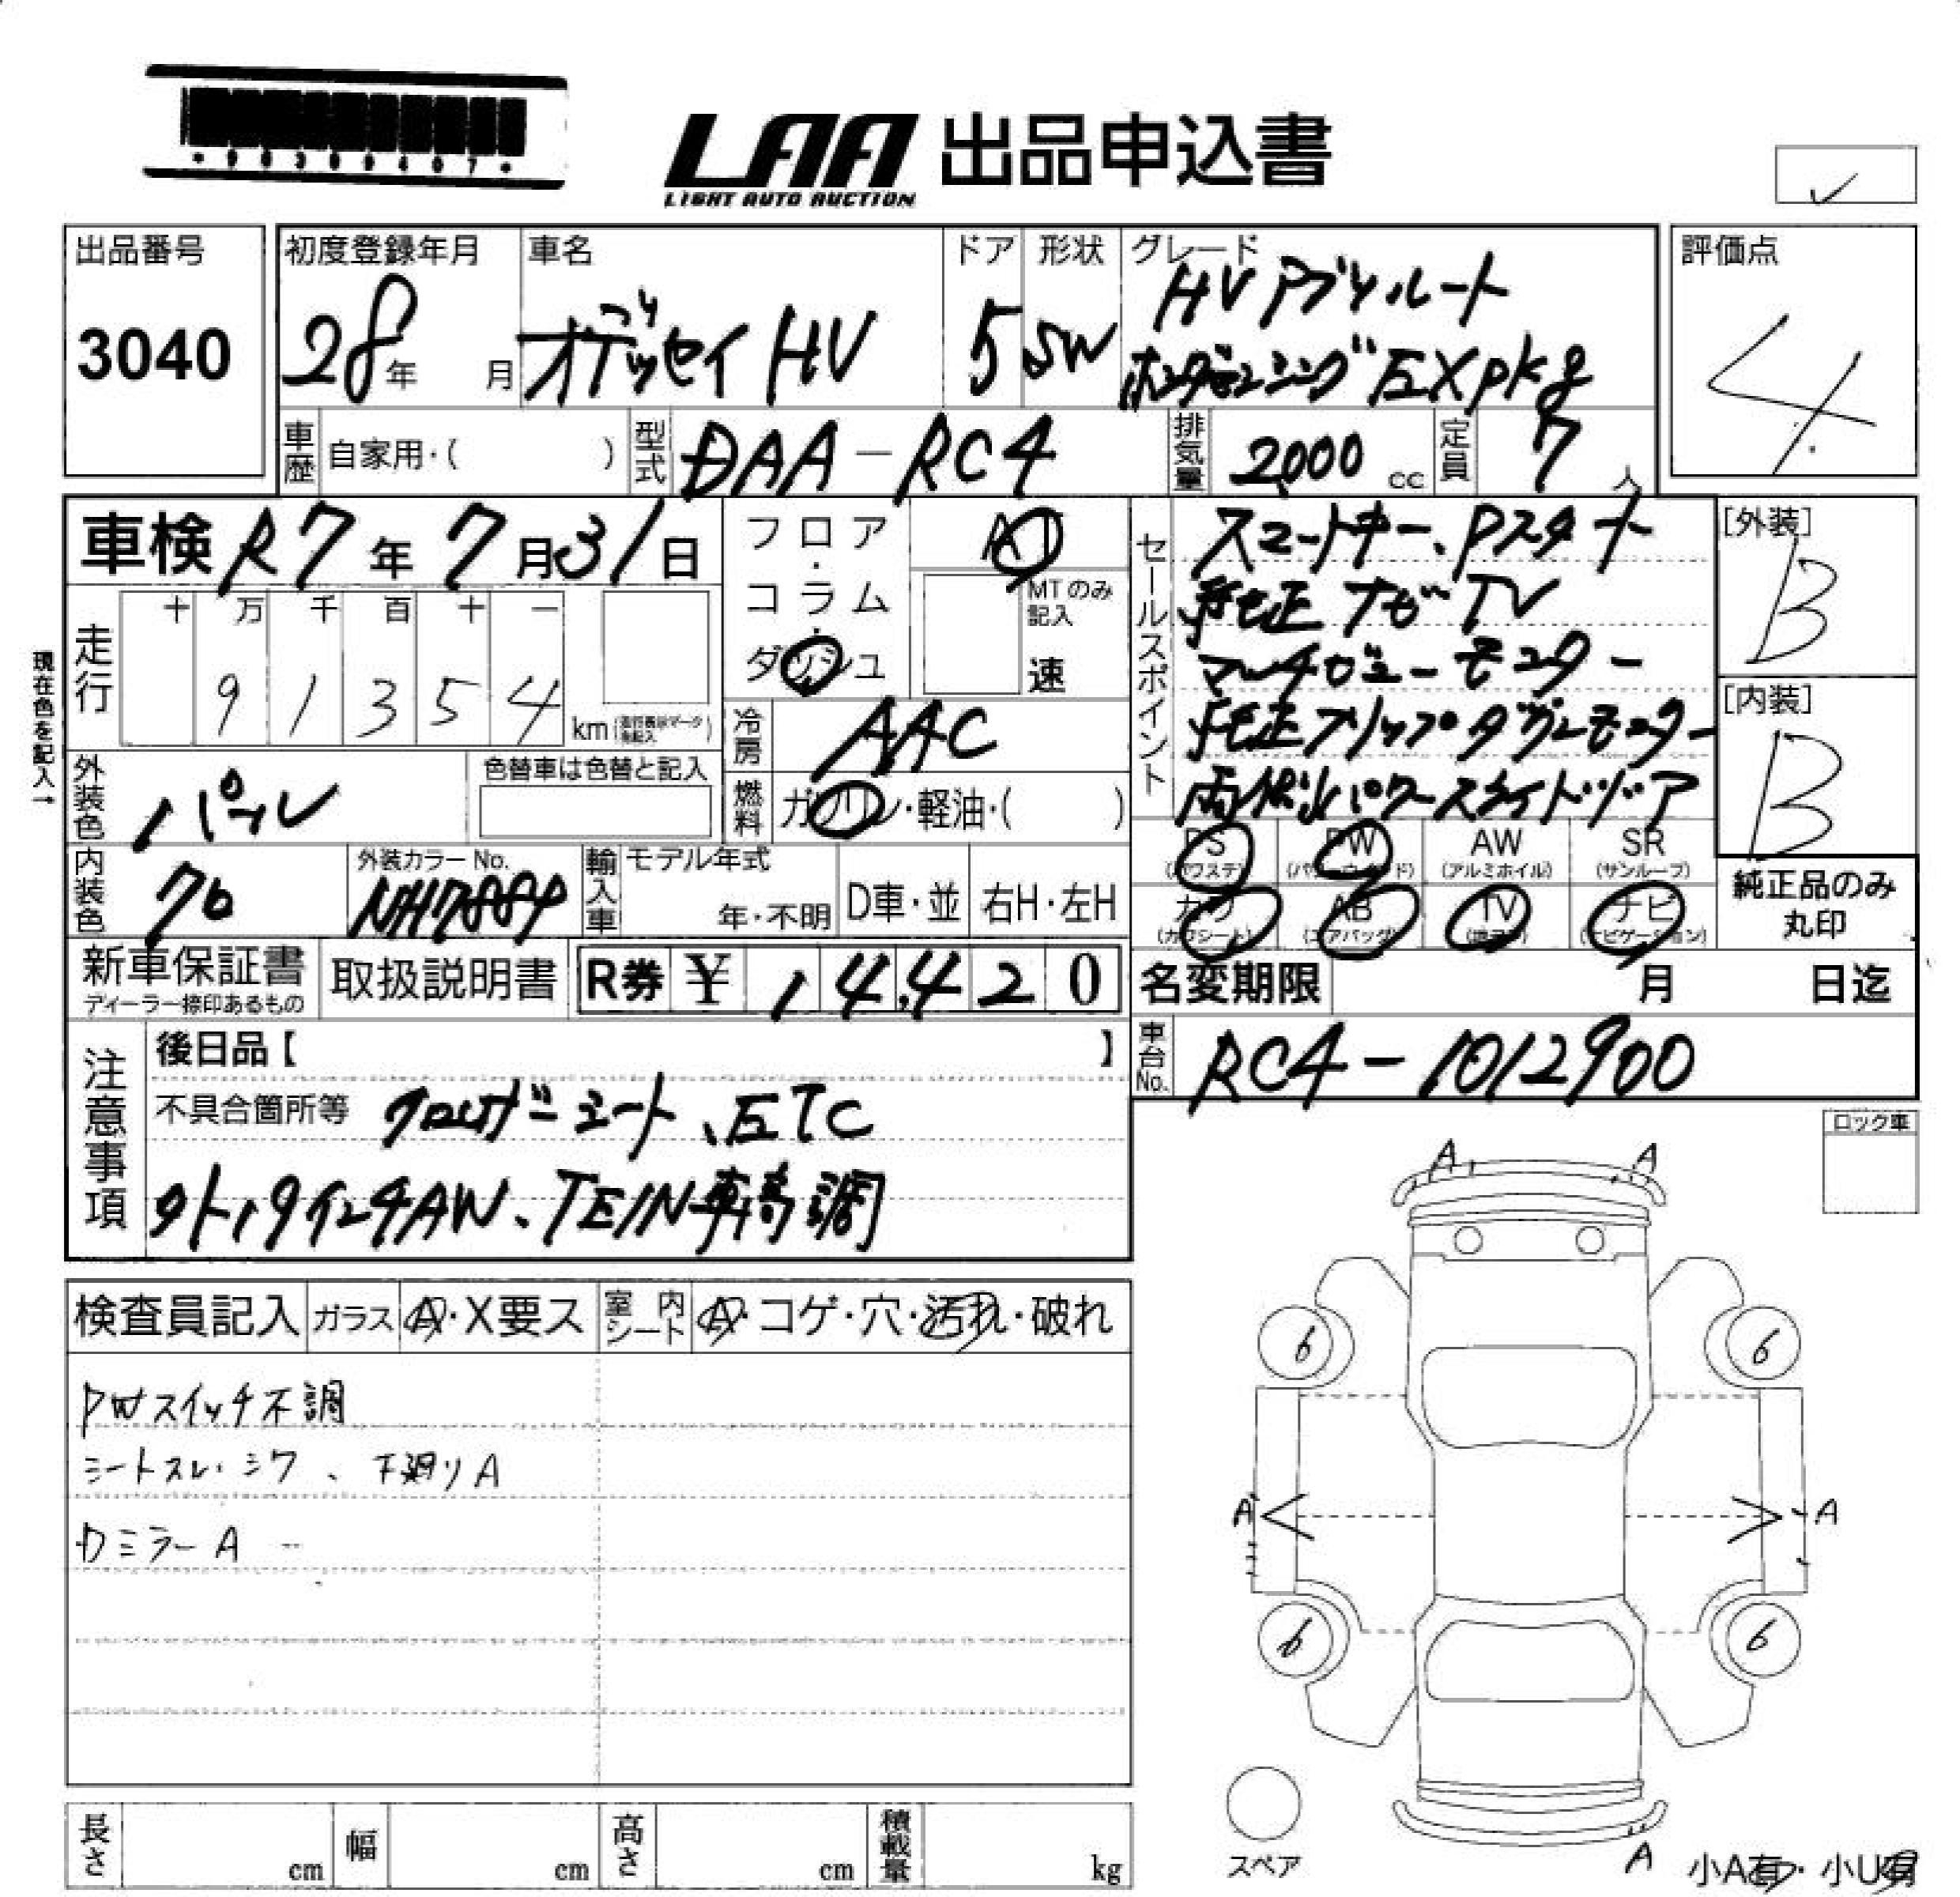 *90309407*
LAA 出品申込書
LIGHT AUTO AUCTION
出品番号
3040
初度登録年月
28年 月
車名
オデッセイ HV
ドア
5
形状
SW
グレード
HV アブソルート
ホンダセンシング EXpkg
評価点
4
車歴 自家用・( )
型式 DAA-RC4
排気量 2000 cc
定員 7 人
車検 R7年 7月 31日
フロア・コラム・ダッシュ
AT
MTのみ記入
速
セールスポイント
スマートキー、Pスタート
純正ナビTV
マルチビューモニター
純正フリップダウンモニター
両側パワースライドドア
[外装]
B
[内装]
B
現在色を記入→
走行 十 万 千 百 十 一
9 1 3 5 4 km
冷房 AAC
燃料 ガソリン・軽油・( )
外装色 パール
色替車は色替と記入
内装色
外装カラーNo.
輸入車 モデル年式
年・不明
D車・並
右H・左H
PS (パワステ)
PW (パワーウィンド)
AW (アルミホイル)
SR (サンルーフ)
カワ (カワシート)
AB (エアバッグ)
TV
ナビ (ナビゲーション)
純正品のみ
丸印
新車保証書
ディーラー捺印あるもの
取扱説明書
R券 ¥ 14,420
名変期限 月 日迄
車台No. RC4-1012900
注意事項
後日品【 】
不具合箇所等 クロレザーシート、ETC
外19インチAW、TEIN車高調
ロック車
検査員記入 ガラス A・X要ス
室内シート A・コゲ・穴・汚れ・破れ
PWスイッチ不調
シートスレ・シワ、下廻りA
ウミラーA
A A
6 6
A A
6 6
スペア
A
小A有・小U有
長さ cm
幅 cm
高さ cm
積載量 kg